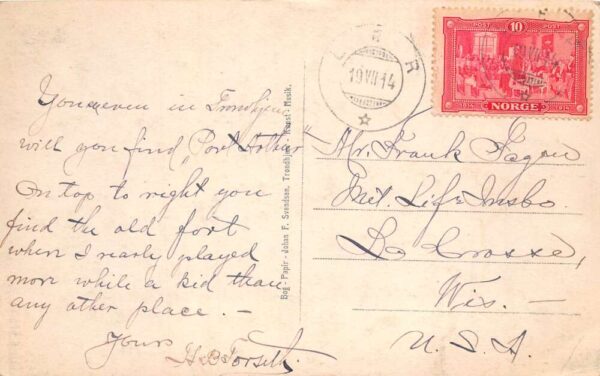 in Trondhjem
will you find "Port Arthur"
On top to right you
find the old fort
where I nearly played
more while a kid than
any other place. —
Yours
Forseth
Bog - Papir - Johan F. Svendsen, Trondhjem. Kunst - Musik.
19 VII 14
POST
10
NORGE
Mr. Frank
Met. Life Insco.
La Crosse,
Wis. —
U. S. A.